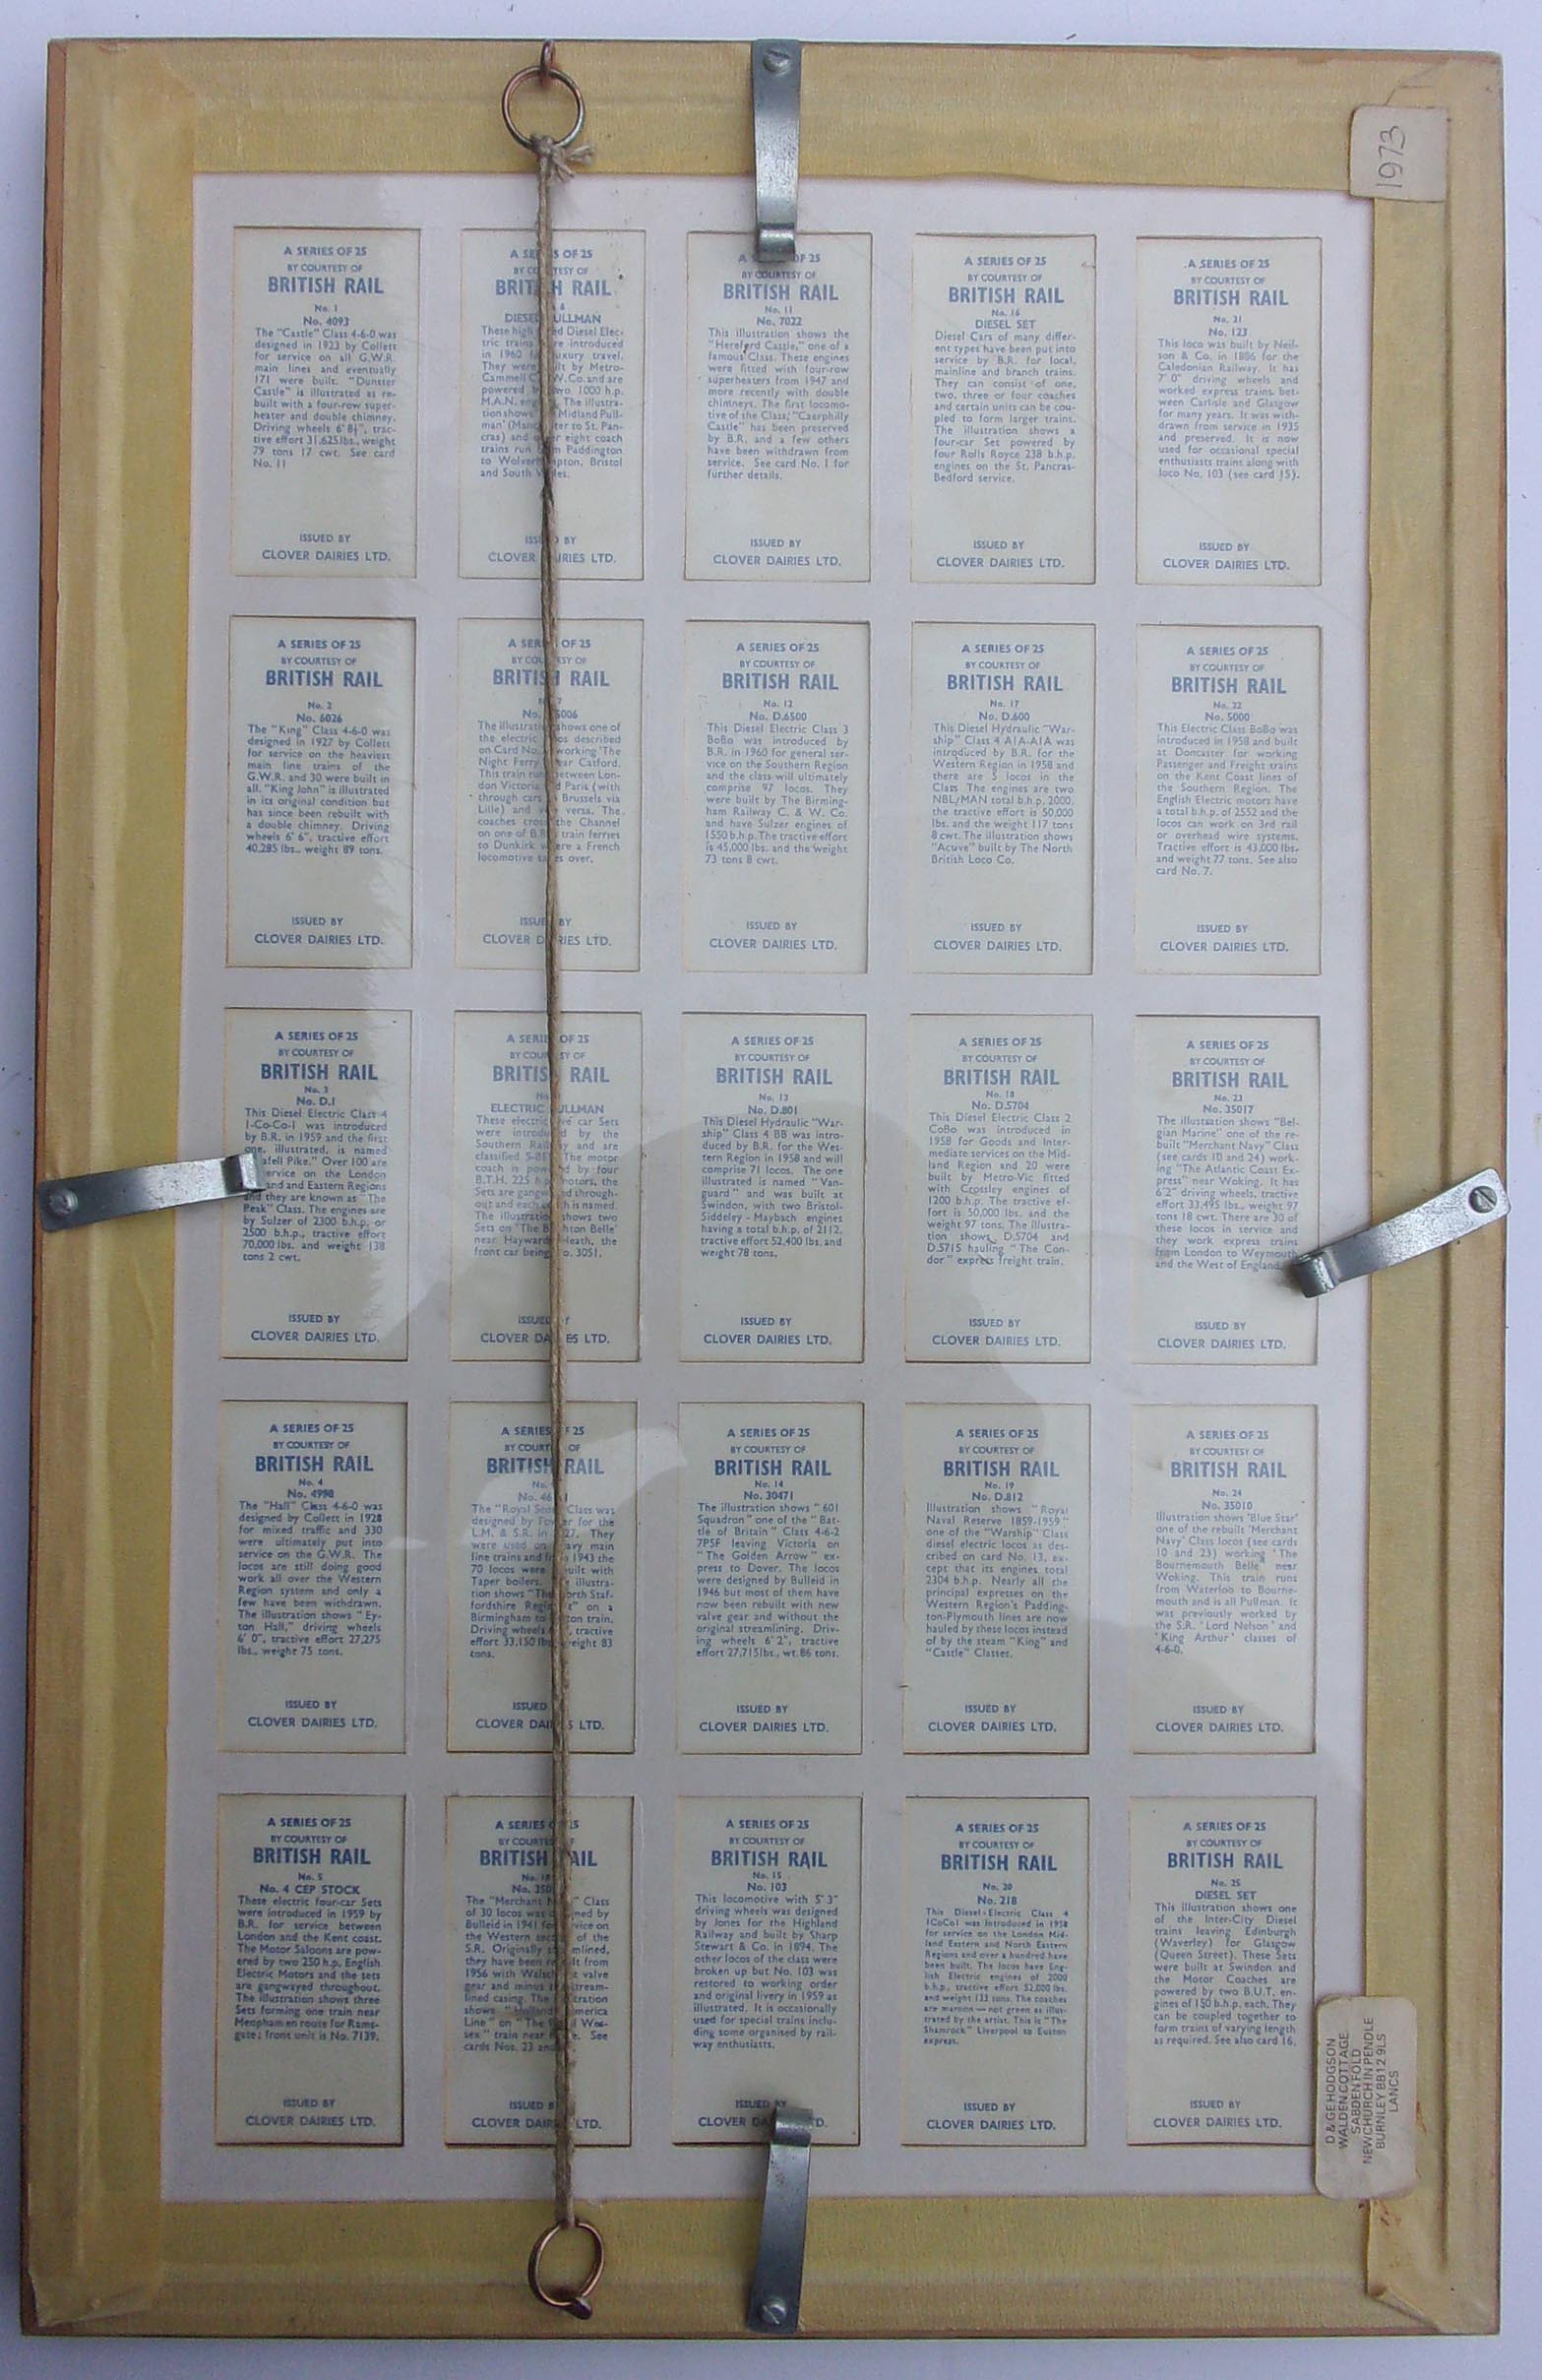 1973
A SERIES OF 25
BY COURTESY OF
BRITISH RAIL
No. 1
No. 4093
The "Castle" Class 4-6-0 was
designed in 1923 by Collett
for service on all G.W.R.
main lines and eventually
171 were built. "Dunster
Castle" is illustrated as re-
built with a four-row super-
heater and double chimney.
Driving wheels 6' 8½", trac-
tive effort 31,625lbs., weight
79 tons 17 cwt. See card
No. 11
ISSUED BY
CLOVER DAIRIES LTD.
A SERIES OF 25
BY COURTESY OF
BRITISH RAIL
No. 2
No. 6026
The "King" Class 4-6-0 was
designed in 1927 by Collett
for service on the heaviest
main line trains of the
G.W.R. and 30 were built in
all. "King John" is illustrated
in its original condition but
has since been rebuilt with
a double chimney. Driving
wheels 6' 6", tractive effort
40,285 lbs., weight 89 tons.
ISSUED BY
CLOVER DAIRIES LTD.
A SERIES OF 25
BY COURTESY OF
BRITISH RAIL
No. 3
No. D.1
This Diesel Electric Class 4
1-Co-Co-1 was introduced
by B.R. in 1959 and the first
one, illustrated, is named
afell Pike." Over 100 are
ervice on the London
and and Eastern Regions
and they are known as "The
Peak" Class. The engines are
by Sulzer of 2300 b.h.p. or
2500 b.h.p., tractive effort
70,000 lbs. and weight 138
tons 2 cwt.
ISSUED BY
CLOVER DAIRIES LTD.
A SERIES OF 25
BY COURTESY OF
BRITISH RAIL
No. 4
No. 4998
The "Hall" Class 4-6-0 was
designed by Collett in 1928
for mixed traffic and 330
were ultimately put into
service on the G.W.R. The
locos are still doing good
work all over the Western
Region system and only a
few have been withdrawn.
The illustration shows "Ey-
ton Hall," driving wheels
6' 0", tractive effort 27,275
lbs., weight 75 tons.
ISSUED BY
CLOVER DAIRIES LTD.
A SERIES OF 25
BY COURTESY OF
BRITISH RAIL
No. 5
No. 4 CEP STOCK
These electric four-car Sets
were introduced in 1959 by
B.R. for service between
London and the Kent coast.
The Motor Saloons are pow-
ered by two 250 h.p. English
Electric Motors and the sets
are gangwayed throughout.
The illustration shows three
Sets forming one train near
Meopham en route for Rams-
gate; front unit is No. 7139.
ISSUED BY
CLOVER DAIRIES LTD.
A SERIES OF 25
BY COURTESY OF
BRITISH RAIL
DIESEL PULLMAN
These high Diesel Elec-
tric trains were introduced
in 1960 for luxury travel.
They were built by Metro-
Cammell C. W. Co. and are
powered by two 1000 h.p.
M.A.N. engines. The illustra-
tion shows Midland Pull-
man' (Manchester to St. Pan-
cras) and eight coach
trains run from Paddington
to Wolverhampton, Bristol
and South Wales.
ISSUED BY
CLOVER DAIRIES LTD.
A SERIES OF 25
BY COURTESY OF
BRITISH RAIL
The illustration shows one of
the electric locos described
on Card No. working 'The
Night Ferry' near Catford.
This train runs between Lon-
don Victoria and Paris (with
through cars Brussels via
Lille) and vice versa. The
coaches cross the Channel
on one of B.R. train ferries
to Dunkirk where a French
locomotive takes over.
ISSUED BY
CLOVER DAIRIES LTD.
A SERIES OF 25
BY COURTESY OF
BRITISH RAIL
ELECTRIC PULLMAN
These electric five car Sets
were introduced by the
Southern Railway and are
classified The motor
coach is powered by four
B.T.H. 225 h.p. motors, the
Sets are gangwayed through-
out and each coach is named.
The illustration shows two
Sets on 'The Brighton Belle'
near Haywards Heath, the
front car being No. 3051.
ISSUED BY
CLOVER DAIRIES LTD.
A SERIES OF 25
BY COURTESY OF
BRITISH RAIL
The "Royal Scot" Class was
designed by Fowler for the
L.M. & S.R. in 1927. They
were used on heavy main
line trains and from 1943 the
70 locos were rebuilt with
Taper boilers. The illustra-
tion shows "The North Staf-
fordshire Regiment" on a
Birmingham to Euston train.
Driving wheels tractive
effort 33,150 lbs. weight 83
tons.
ISSUED
CLOVER DAIRIES LTD.
A SERIES OF 25
BY COURTESY OF
BRITISH RAIL
The "Merchant Navy" Class
of 30 locos was designed by
Bulleid in 1941 for service on
the Western section of the
S.R. Originally streamlined,
they have been rebuilt from
1956 with Walschaert valve
gear and minus stream-
lined casing. The illustration
shows "Holland America
Line" on "The Wes-
sex" train near See
cards Nos. 23 and
ISSUED BY
CLOVER DAIRIES LTD.
A SERIES OF 25
BY COURTESY OF
BRITISH RAIL
No. 11
No. 7022
This illustration shows the
"Hereford Castle," one of a
famous Class. These engines
were fitted with four-row
superheaters from 1947 and
more recently with double
chimneys. The first locomo-
tive of the Class, "Caerphilly
Castle" has been preserved
by B.R. and a few others
have been withdrawn from
service. See card No. 1 for
further details.
ISSUED BY
CLOVER DAIRIES LTD.
A SERIES OF 25
BY COURTESY OF
BRITISH RAIL
No. 12
No. D.6500
This Diesel Electric Class 3
BoBo was introduced by
B.R. in 1960 for general ser-
vice on the Southern Region
and the class will ultimately
comprise 97 locos. They
were built by The Birming-
ham Railway C. & W. Co.
and have Sulzer engines of
1550 b.h.p. The tractive effort
is 45,000 lbs. and the weight
73 tons 8 cwt.
ISSUED BY
CLOVER DAIRIES LTD.
A SERIES OF 25
BY COURTESY OF
BRITISH RAIL
No. 13
No. D.801
This Diesel Hydraulic "War-
ship" Class 4 BB was intro-
duced by B.R. for the Wes-
tern Region in 1958 and will
comprise 71 locos. The one
illustrated is named "Van-
guard" and was built at
Swindon, with two Bristol-
Siddeley - Maybach engines
having a total b.h.p. of 2112,
tractive effort 52,400 lbs. and
weight 78 tons.
ISSUED BY
CLOVER DAIRIES LTD.
A SERIES OF 25
BY COURTESY OF
BRITISH RAIL
No. 14
No. 30471
The illustration shows "601
Squadron" one of the "Bat-
tle of Britain" Class 4-6-2
7P5F leaving Victoria on
"The Golden Arrow" ex-
press to Dover. The locos
were designed by Bulleid in
1946 but most of them have
now been rebuilt with new
valve gear and without the
original streamlining. Driv-
ing wheels 6' 2", tractive
effort 27,715lbs., wt. 86 tons.
ISSUED BY
CLOVER DAIRIES LTD.
A SERIES OF 25
BY COURTESY OF
BRITISH RAIL
No. 15
No. 103
This locomotive with 5' 3"
driving wheels was designed
by Jones for the Highland
Railway and built by Sharp
Stewart & Co. in 1894. The
other locos of the class were
broken up but No. 103 was
restored to working order
and original livery in 1959 as
illustrated. It is occasionally
used for special trains inclu-
ding some organised by rail-
way enthusiasts.
ISSUED BY
CLOVER DAIRIES LTD.
A SERIES OF 25
BY COURTESY OF
BRITISH RAIL
No. 16
DIESEL SET
Diesel Cars of many differ-
ent types have been put into
service by B.R. for local,
mainline and branch trains.
They can consist of one,
two, three or four coaches
and certain units can be cou-
pled to form larger trains.
The illustration shows a
four-car Set powered by
four Rolls Royce 238 b.h.p.
engines on the St. Pancras-
Bedford service.
ISSUED BY
CLOVER DAIRIES LTD.
A SERIES OF 25
BY COURTESY OF
BRITISH RAIL
No. 17
No. D.600
This Diesel Hydraulic "War-
ship" Class 4 A1A-A1A was
introduced by B.R. for the
Western Region in 1958 and
there are 5 locos in the
Class The engines are two
NBL/MAN total b.h.p. 2000,
the tractive effort is 50,000
lbs. and the weight 117 tons
8 cwt. The illustration shows
"Acuve" built by The North
British Loco Co.
ISSUED BY
CLOVER DAIRIES LTD.
A SERIES OF 25
BY COURTESY OF
BRITISH RAIL
No. 18
No. D.5704
This Diesel Electric Class 2
CoBo was introduced in
1958 for Goods and Inter-
mediate services on the Mid-
land Region and 20 were
built by Metro-Vic fitted
with Crossley engines of
1200 b.h.p. The tractive ef-
fort is 50,000 lbs. and the
weight 97 tons. The illustra-
tion shows D.5704 and
D.5715 hauling "The Con-
dor" express freight train.
ISSUED BY
CLOVER DAIRIES LTD.
A SERIES OF 25
BY COURTESY OF
BRITISH RAIL
No. 19
No. D.812
Illustration shows "Royal
Naval Reserve 1859-1959"
one of the "Warship" Class
diesel electric locos as des-
cribed on card No. 13, ex-
cept that its engines total
2304 b.h.p. Nearly all the
principal expresses on the
Western Region's Padding-
ton-Plymouth lines are now
hauled by these locos instead
of by the steam "King" and
"Castle" Classes.
ISSUED BY
CLOVER DAIRIES LTD.
A SERIES OF 25
BY COURTESY OF
BRITISH RAIL
No. 20
No. 218
This Diesel-Electric Class 4
1CoCo1 was introduced in 1958
for service on the London Mid-
land Eastern and North Eastern
Regions and over a hundred have
been built. The locos have Eng-
lish Electric engines of 2000
b.h.p., tractive effort 52,000 lbs.
and weight 133 tons. The coaches
are maroon — not green as illus-
trated by the artist. This is "The
Shamrock" Liverpool to Euston
express.
ISSUED BY
CLOVER DAIRIES LTD.
A SERIES OF 25
BY COURTESY OF
BRITISH RAIL
No. 21
No. 123
This loco was built by Neil-
son & Co. in 1886 for the
Caledonian Railway. It has
7' 0" driving wheels and
worked express trains bet-
ween Carlisle and Glasgow
for many years. It was with-
drawn from service in 1935
and preserved. It is now
used for occasional special
enthusiasts trains along with
loco No. 103 (see card 15).
ISSUED BY
CLOVER DAIRIES LTD.
A SERIES OF 25
BY COURTESY OF
BRITISH RAIL
No. 22
No. 5000
This Electric Class BoBo was
introduced in 1958 and built
at Doncaster for working
Passenger and Freight trains
on the Kent Coast lines of
the Southern Region. The
English Electric motors have
a total b.h.p. of 2552 and the
locos can work on 3rd rail
or overhead wire systems.
Tractive effort is 43,000 lbs.
and weight 77 tons. See also
card No. 7.
ISSUED BY
CLOVER DAIRIES LTD.
A SERIES OF 25
BY COURTESY OF
BRITISH RAIL
No. 23
No. 35017
The illustration shows "Bel-
gian Marine" one of the re-
built "Merchant Navy" Class
(see cards 10 and 24) work-
ing "The Atlantic Coast Ex-
press" near Woking. It has
6'2" driving wheels, tractive
effort 33,495 lbs., weight 97
tons 18 cwt. There are 30 of
these locos in service and
they work express trains
from London to Weymouth
and the West of England.
ISSUED BY
CLOVER DAIRIES LTD.
A SERIES OF 25
BY COURTESY OF
BRITISH RAIL
No. 24
No. 35010
Illustration shows 'Blue Star'
one of the rebuilt 'Merchant
Navy' Class locos (see cards
10 and 23) working 'The
Bournemouth Belle' near
Woking. This train runs
from Waterloo to Bourne-
mouth and is all Pullman. It
was previously worked by
the S.R. 'Lord Nelson' and
'King Arthur' classes of
4-6-0.
ISSUED BY
CLOVER DAIRIES LTD.
A SERIES OF 25
BY COURTESY OF
BRITISH RAIL
No. 25
DIESEL SET
This illustration shows one
of the Inter-City Diesel
trains leaving Edinburgh
(Waverley) for Glasgow
(Queen Street). These Sets
were built at Swindon and
the Motor Coaches are
powered by two B.U.T. en-
gines of 150 b.h.p. each. They
can be coupled together to
form trains of varying length
as required. See also card 16.
ISSUED BY
CLOVER DAIRIES LTD.
D & GE HODGSON
WALDEN COTTAGE
SABDEN FOLD
NEWCHURCH IN PENDLE
BURNLEY BB12 9LS
LANCS